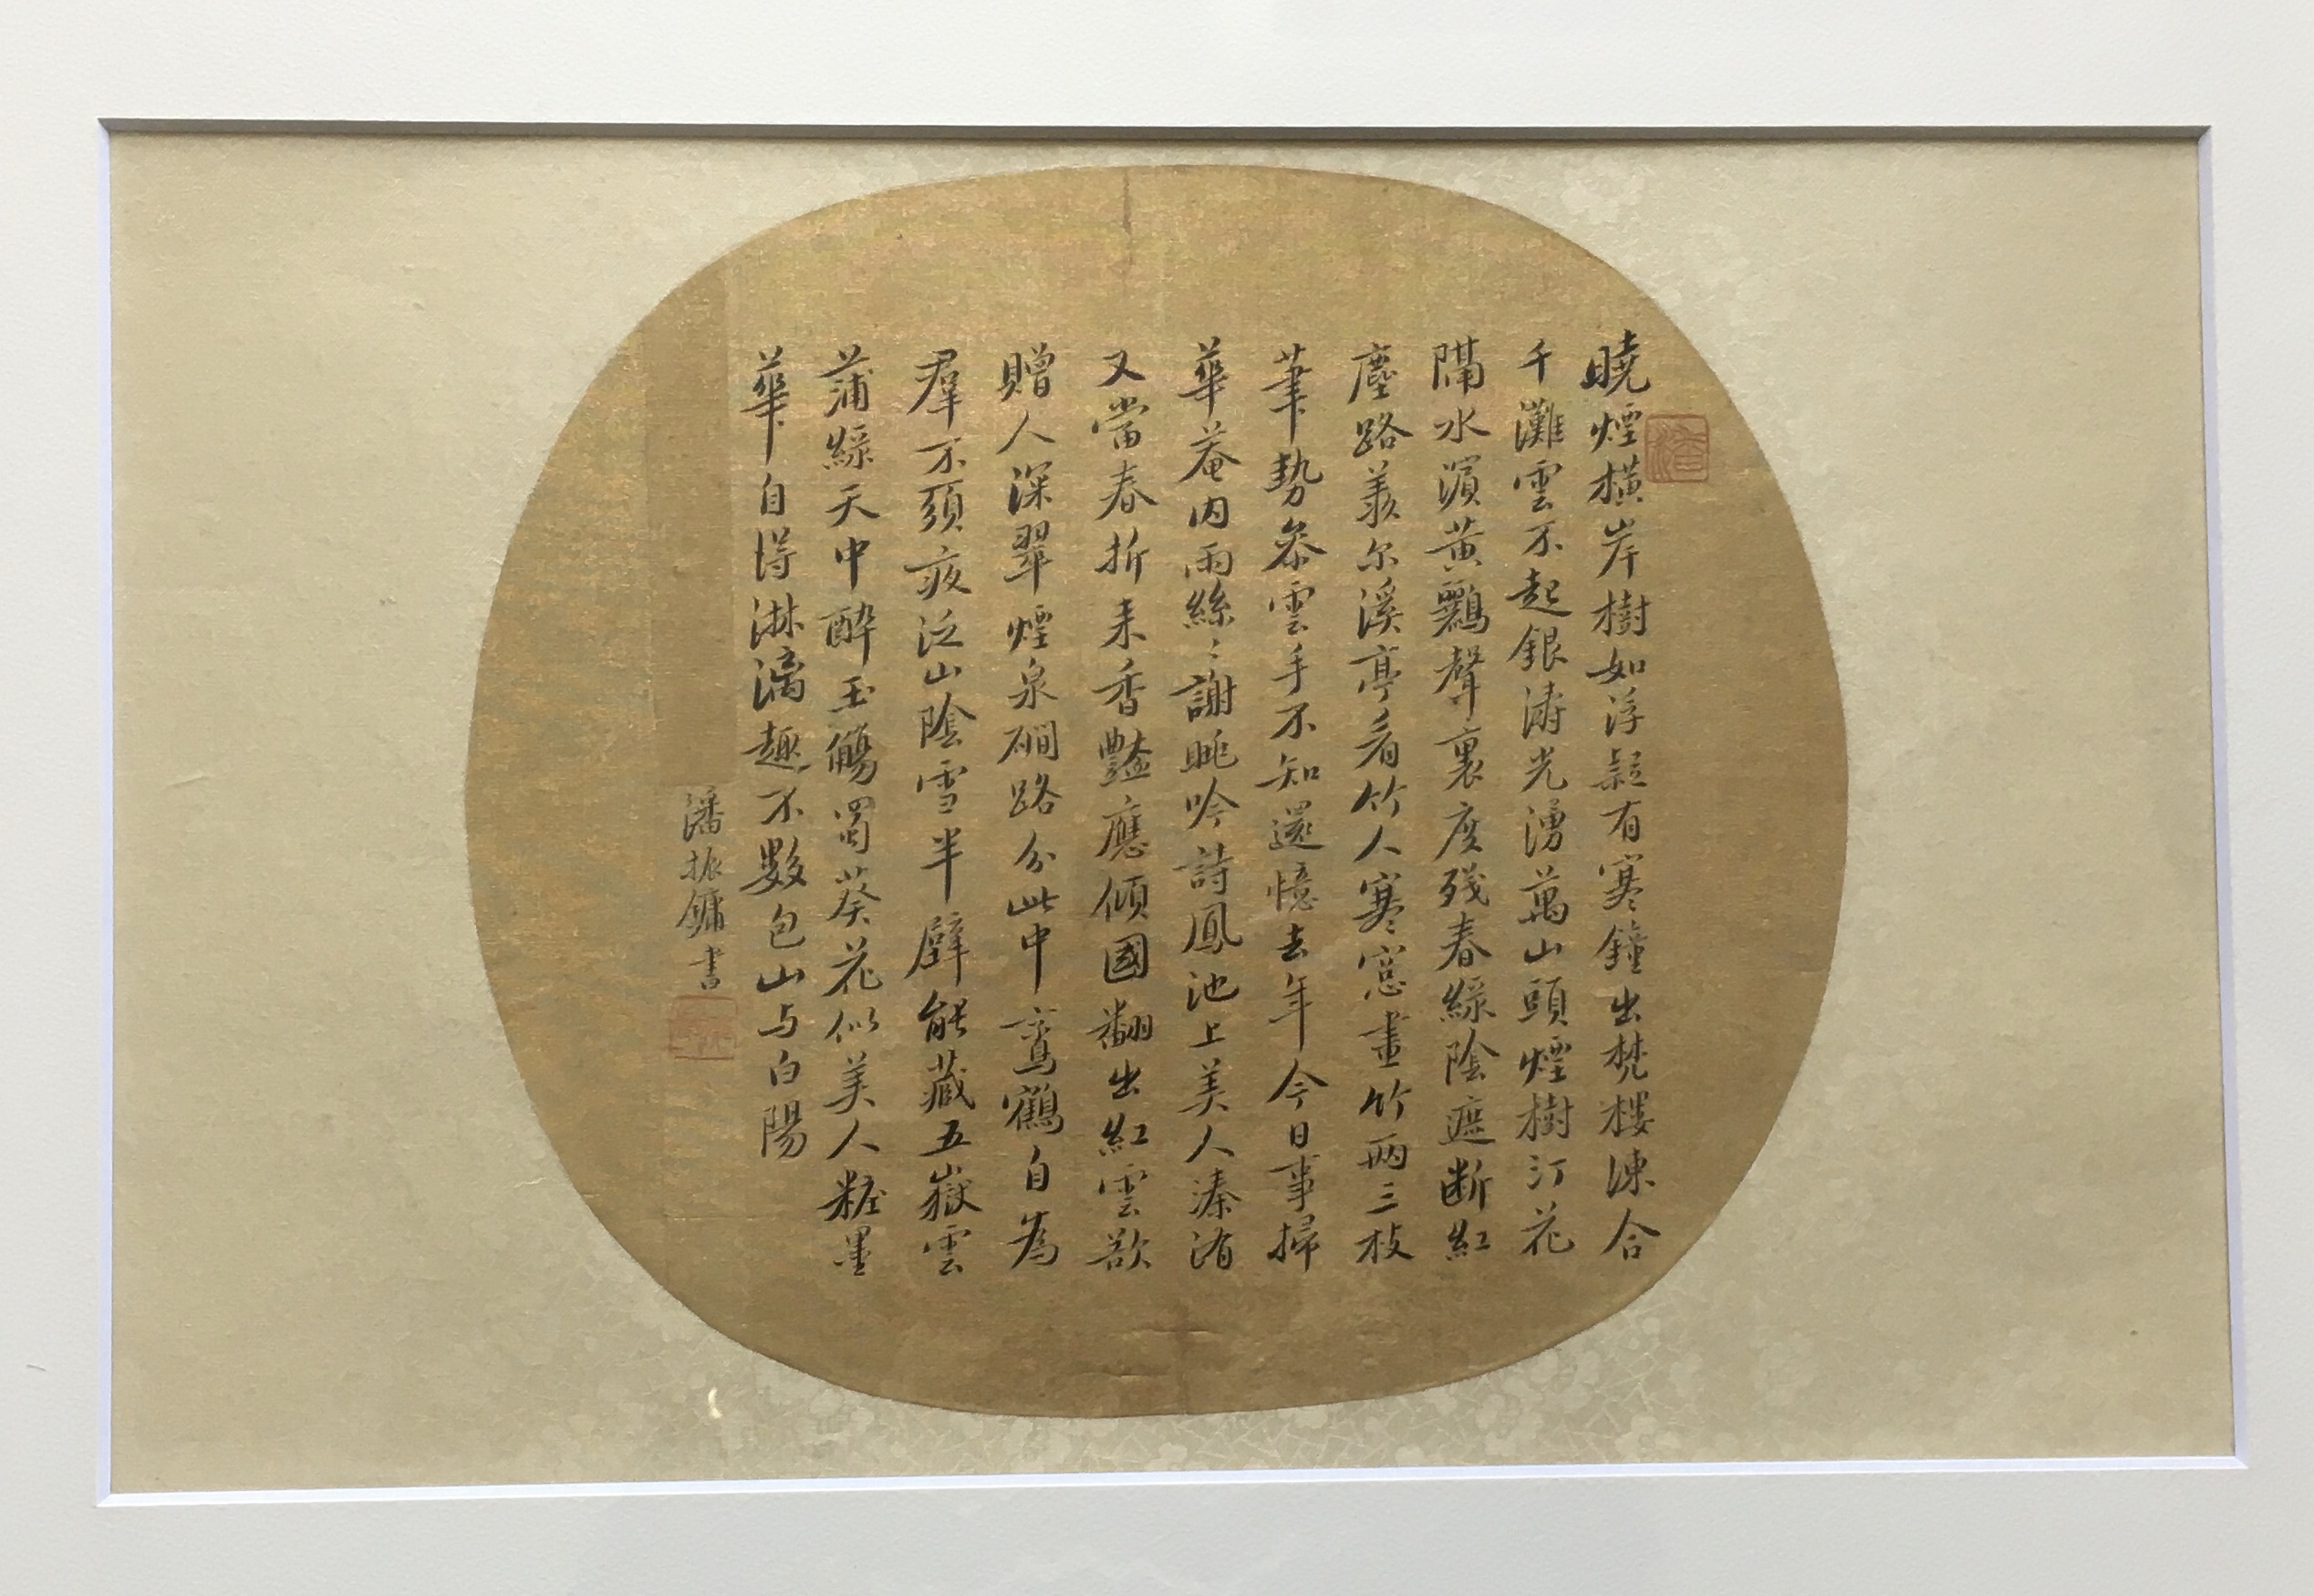 曉煙橫岸樹如浮疑有寒鐘出梵樓湅合
千灘雲不起銀濤光湧萬山頭煙樹汀花
隔水濵黃鸝聲裏度殘春綠陰遮断紅
塵路羨尔溪亭看竹人寒窓畫竹兩三枝
筆勢叅雲手不知還憶去年今日事掃
華菴内雨絲〻謝眺吟詩鳳池上美人溱洧
又當春折来香豔應傾國翻出紅雲欲
贈人深翠煙泉磵路分此中鸞鶴自為
羣不須夜泛山陰雪半壁能藏五嶽雲
蒲綠天中酔玉觴蜀葵花似美人粧墨
華自得淋漓趣不數包山与白陽
潘振鏞書